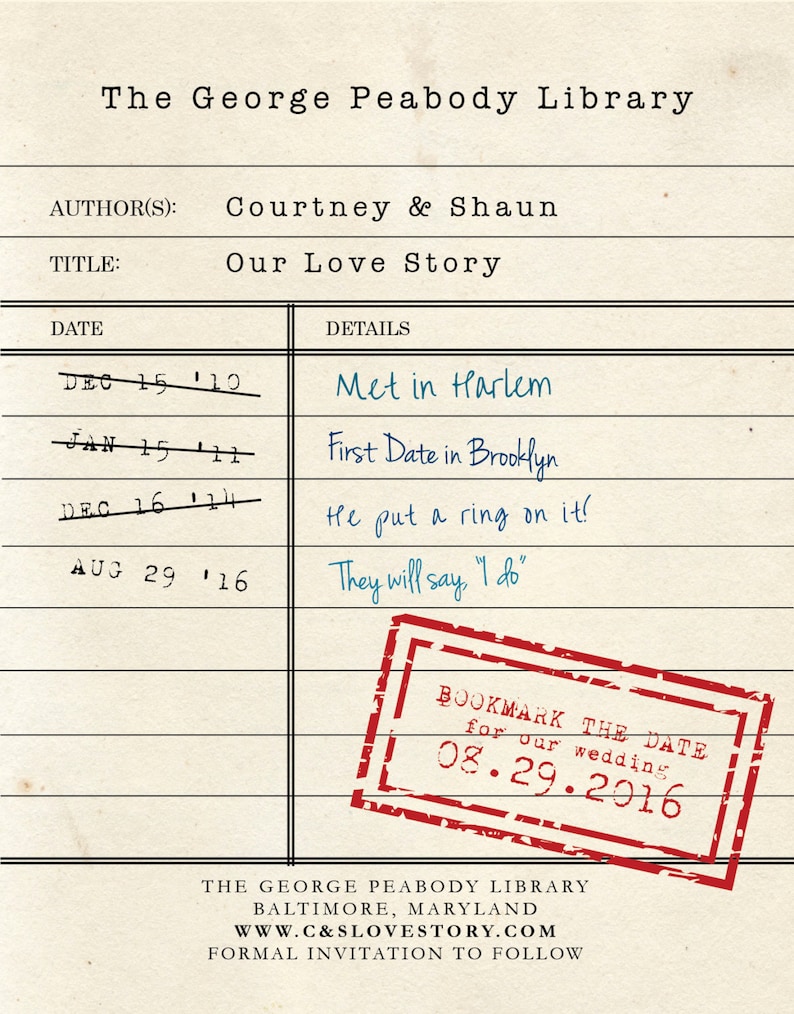 The George Peabody Library
AUTHOR(S): Courtney & Shaun
TITLE: Our Love Story
DATE DETAILS
DEC 15 '10 Met in Harlem
JAN 15 '11 First Date in Brooklyn
DEC 16 '14 He put a ring on it!
AUG 29 '16 They will say, "I do"
BOOKMARK THE DATE
for our wedding
08.29.2016
THE GEORGE PEABODY LIBRARY
BALTIMORE, MARYLAND
WWW.C&SLOVESTORY.COM
FORMAL INVITATION TO FOLLOW